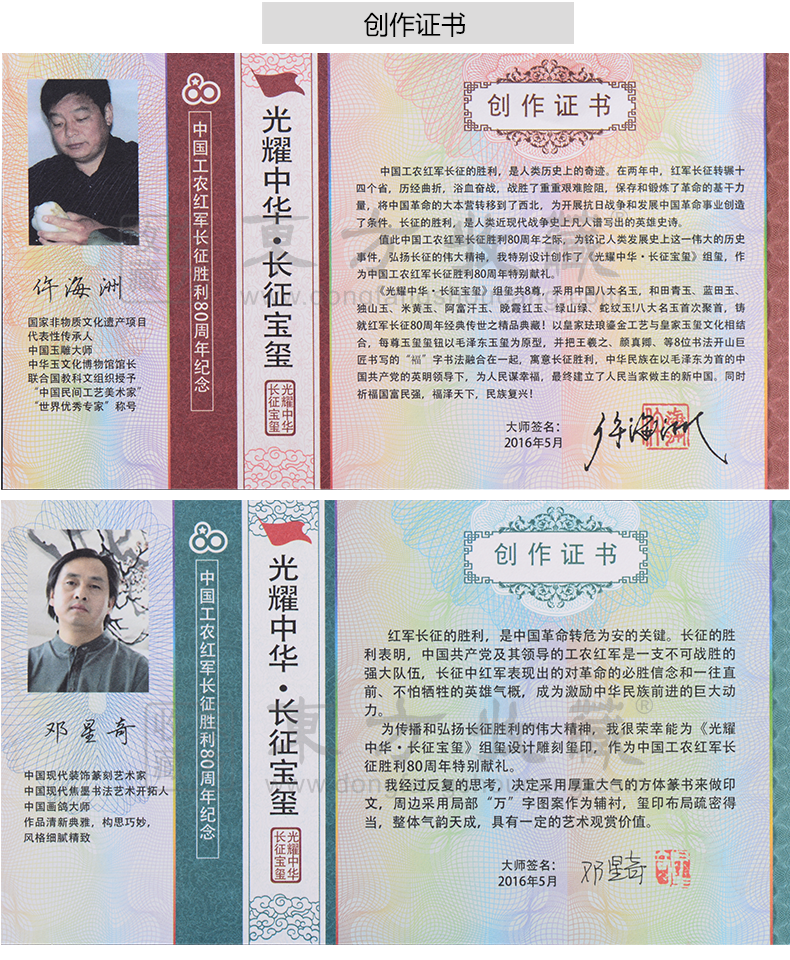 创作证书
仵海洲
国家非物质文化遗产项目
代表性传承人
中国玉雕大师
中华玉文化博物馆馆长
联合国教科文组织授予
“中国民间工艺美术家”
“世界优秀专家”称号
中国工农红军长征胜利80周年纪念
光耀中华·长征宝玺
光耀中华
长征宝玺
创作证书
中国工农红军长征的胜利，是人类历史上的奇迹。在两年中，红军长征转辗十
四个省，历经曲折，浴血奋战，战胜了重重艰难险阻，保存和锻炼了革命的基干力
量，将中国革命的大本营转移到了西北，为开展抗日战争和发展中国革命事业创造
了条件。长征的胜利，是人类近现代战争史上凡人谱写出的英雄史诗。
值此中国工农红军长征胜利80周年之际，为铭记人类发展史上这一伟大的历史
事件，弘扬长征的伟大精神，我特别设计创作了《光耀中华·长征宝玺》组玺，作
为中国工农红军长征胜利80周年特别献礼。
《光耀中华·长征宝玺》组玺共8尊，采用中国八大名玉，和田青玉、蓝田玉、
独山玉、米黄玉、阿富汗玉、晚霞红玉、绿山绿、蛇纹玉!八大名玉首次聚首，铸
就红军长征80周年经典传世之精品典藏！以皇家珐琅鎏金工艺与皇家玉玺文化相结
合，每尊玉玺玺钮以毛泽东玉玺为原型，并把王羲之、颜真卿、等8位书法开山巨
匠书写的“福”字书法融合在一起，寓意长征胜利，中华民族在以毛泽东为首的中
国共产党的英明领导下，为人民谋幸福，最终建立了人民当家做主的新中国。同时
祈福国富民强，福泽天下，民族复兴！
大师签名：
2016年5月
仵海洲
東方收藏®
www.dongfangshoucang.com
邓星奇
中国现代装饰篆刻艺术家
中国现代焦墨书法艺术开拓人
中国画鸽大师
作品清新典雅，构思巧妙，
风格细腻精致
中国工农红军长征胜利80周年纪念
光耀中华·长征宝玺
光耀中华
长征宝玺
创作证书
红军长征的胜利，是中国革命转危为安的关键。长征的胜
利表明，中国共产党及其领导的工农红军是一支不可战胜的
强大队伍，长征中红军表现出的对革命的必胜信念和一往直
前、不怕牺牲的英雄气概，成为激励中华民族前进的巨大动
力。
为传播和弘扬长征胜利的伟大精神，我很荣幸能为《光耀
中华·长征宝玺》组玺设计雕刻玺印，作为中国工农红军长
征胜利80周年特别献礼。
我经过反复的思考，决定采用厚重大气的方体篆书来做印
文，周边采用局部“万”字图案作为辅衬，玺印布局疏密得
当，整体气韵天成，具有一定的艺术观赏价值。
大师签名：
2016年5月
邓星奇